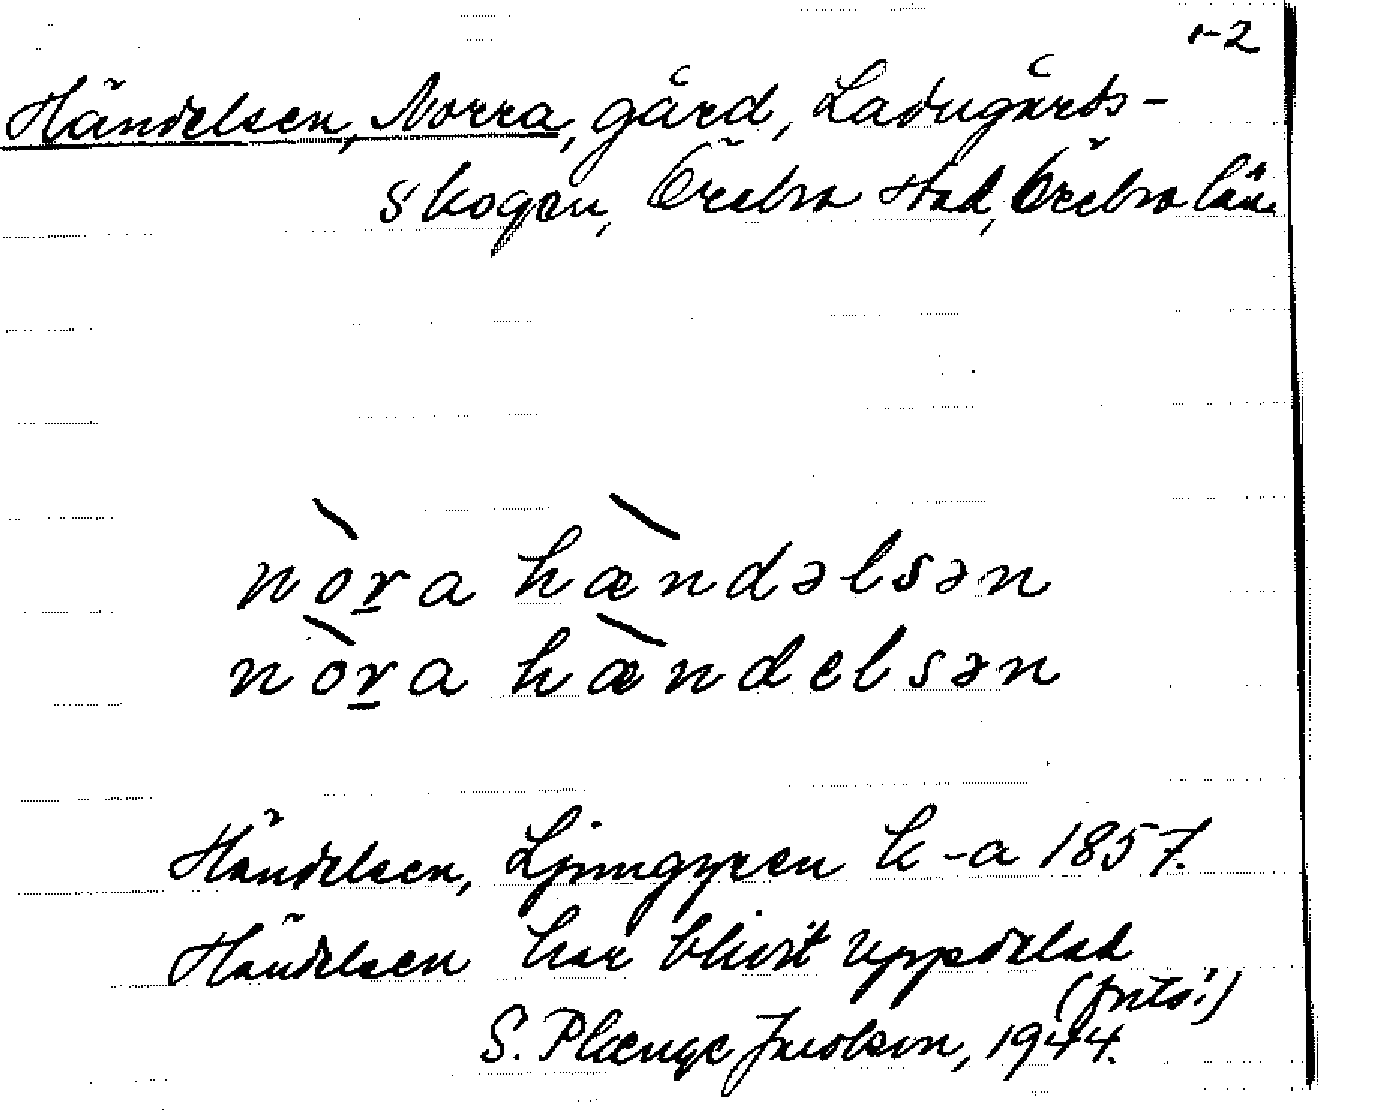 1-2
Händelsen, Norra, gård, Ladugårds-
skogen, Örebro stad, Örebro län.
nòr̲a hæ̀ndəlsən
nòr̲a hæ̀ndelsən
Händelsen, Ljunggren k-a 1857.
Händelsen har blivit uppdelad
S. Plænge Jacobson, 1944.